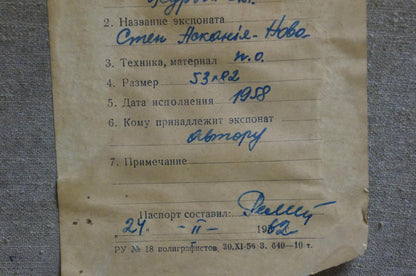 2. Название экспоната
Степ Асканія-Нова
3. Техника, материал п.о.
4. Размер 53х82
5. Дата исполнения 1958
6. Кому принадлежит экспонат
Автору
7. Примечание
Паспорт составил:
24. - II - 1962
РУ № 18 полиграфистов, 30.XI-56 З. 640—10 т.